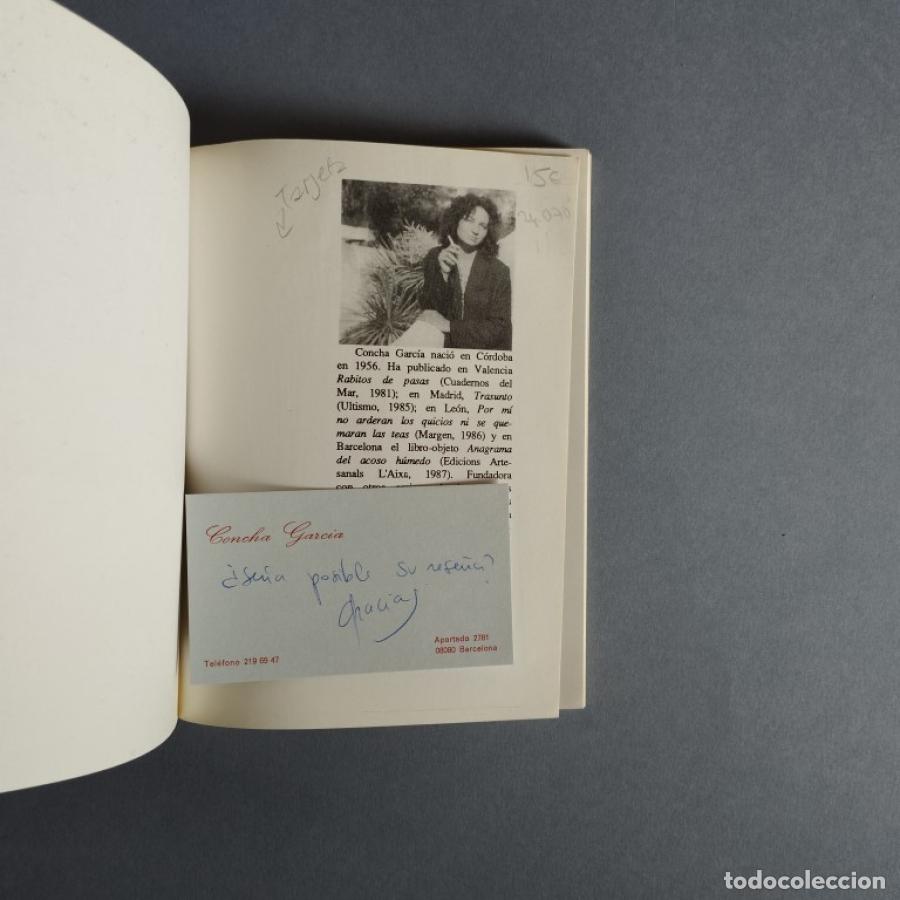 Tarjeta
15€
24.070
Concha García nació en Córdoba
en 1956. Ha publicado en Valencia
Rabitos de pasas (Cuadernos del
Mar, 1981); en Madrid, Trasunto
(Ultismo, 1985); en León, Por mí
no arderan los quicios ni se que-
maran las teas (Margen, 1986) y en
Barcelona el libro-objeto Anagrama
del acoso húmedo (Edicions Arte-
sanals L'Aixa, 1987). Fundadora
con otros
Concha García
¿Sería posible su reseña?
Gracias
Teléfono 219 69 47
Apartado 2781
08080 Barcelona
todocoleccion